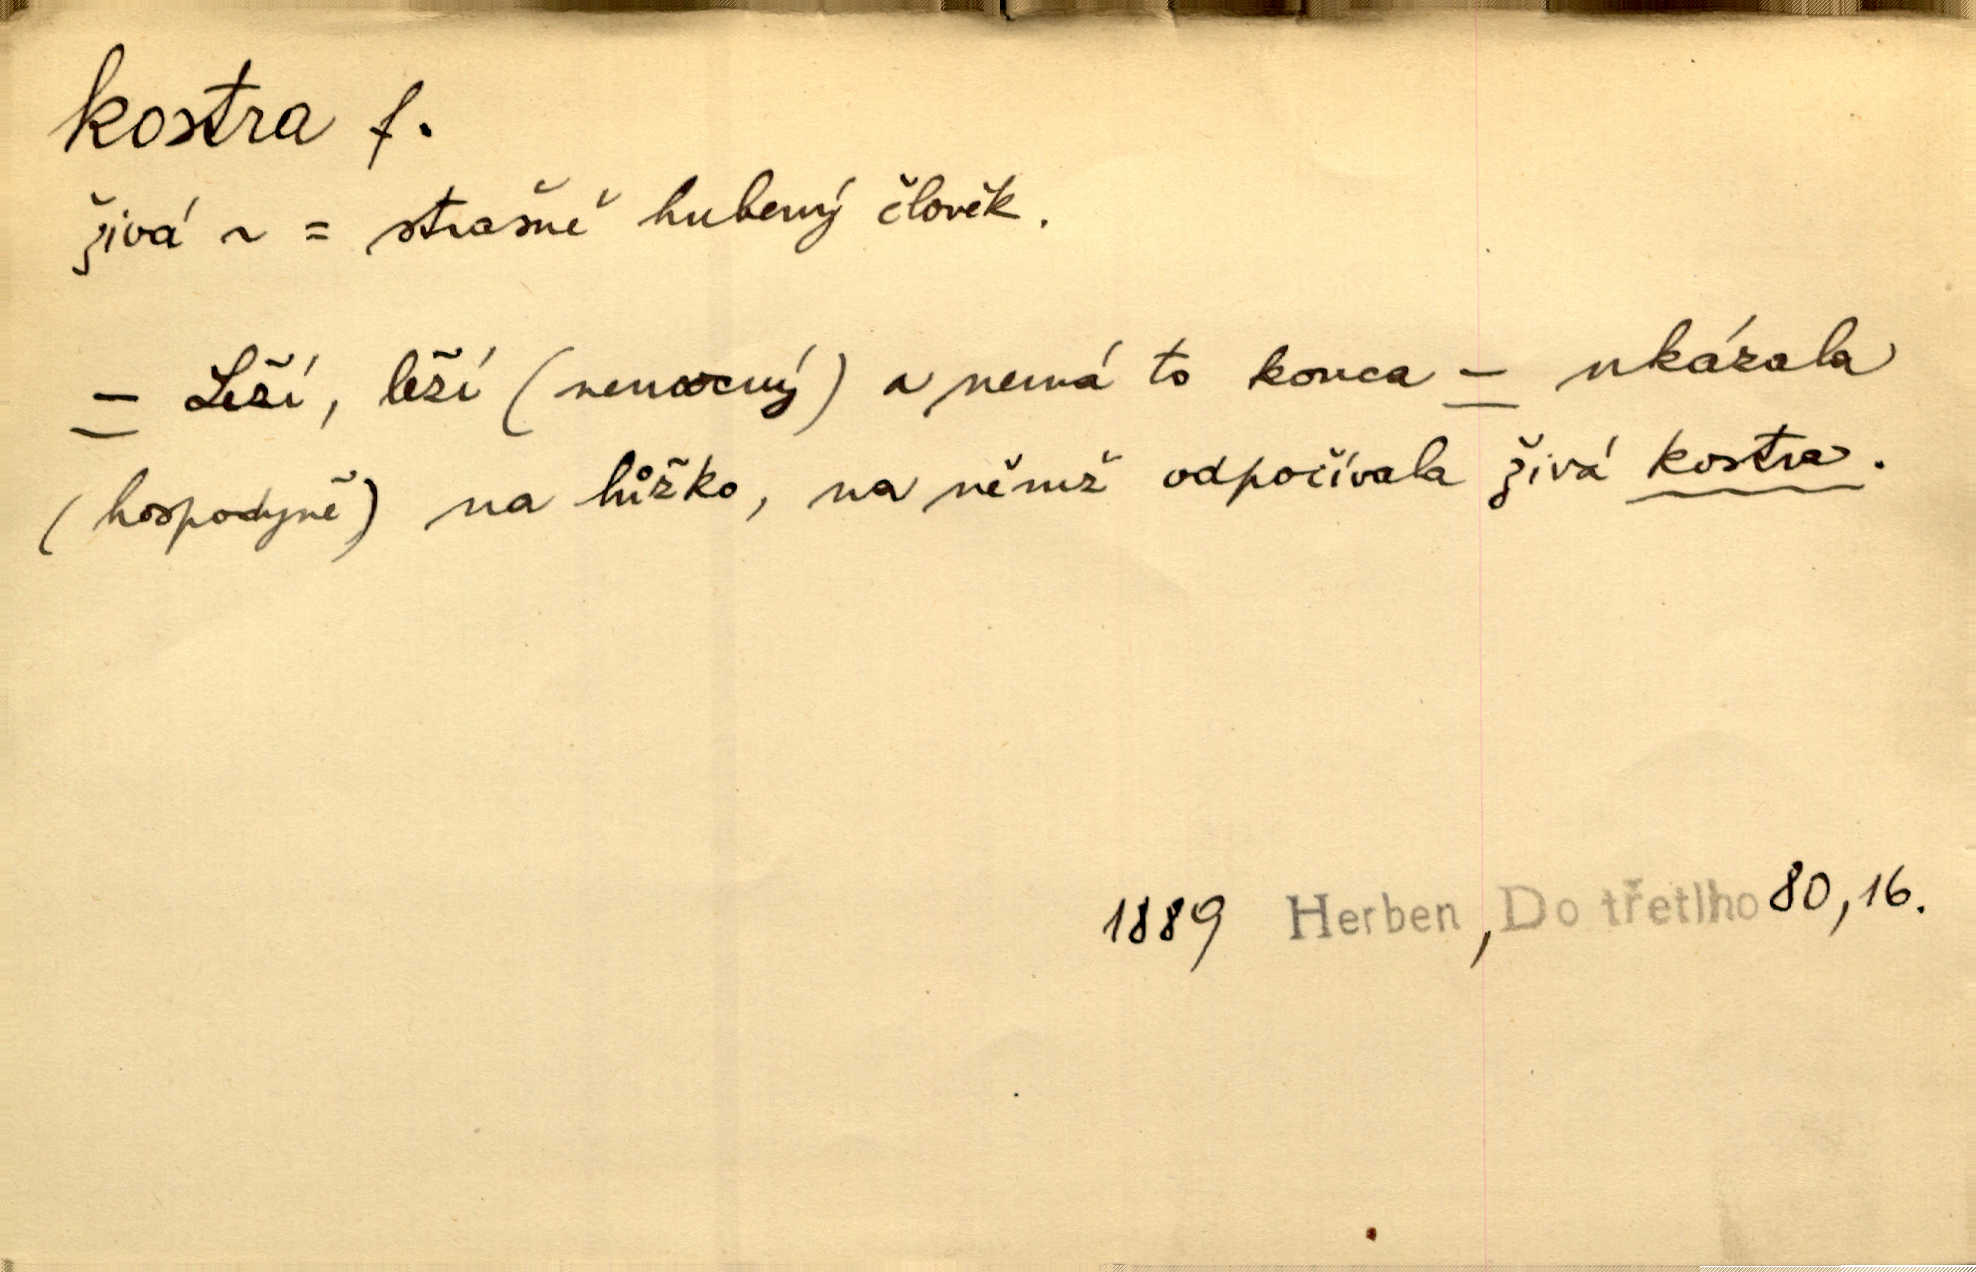 kostra f.
živá ~ = strašně hubený člověk.
— Leží, leží (nemocný) a nemá to konca — ukázala
(hospodyně) na lůžko, na němž odpočívala živá kostra.
1889 Herben, Do třetího 80,16.